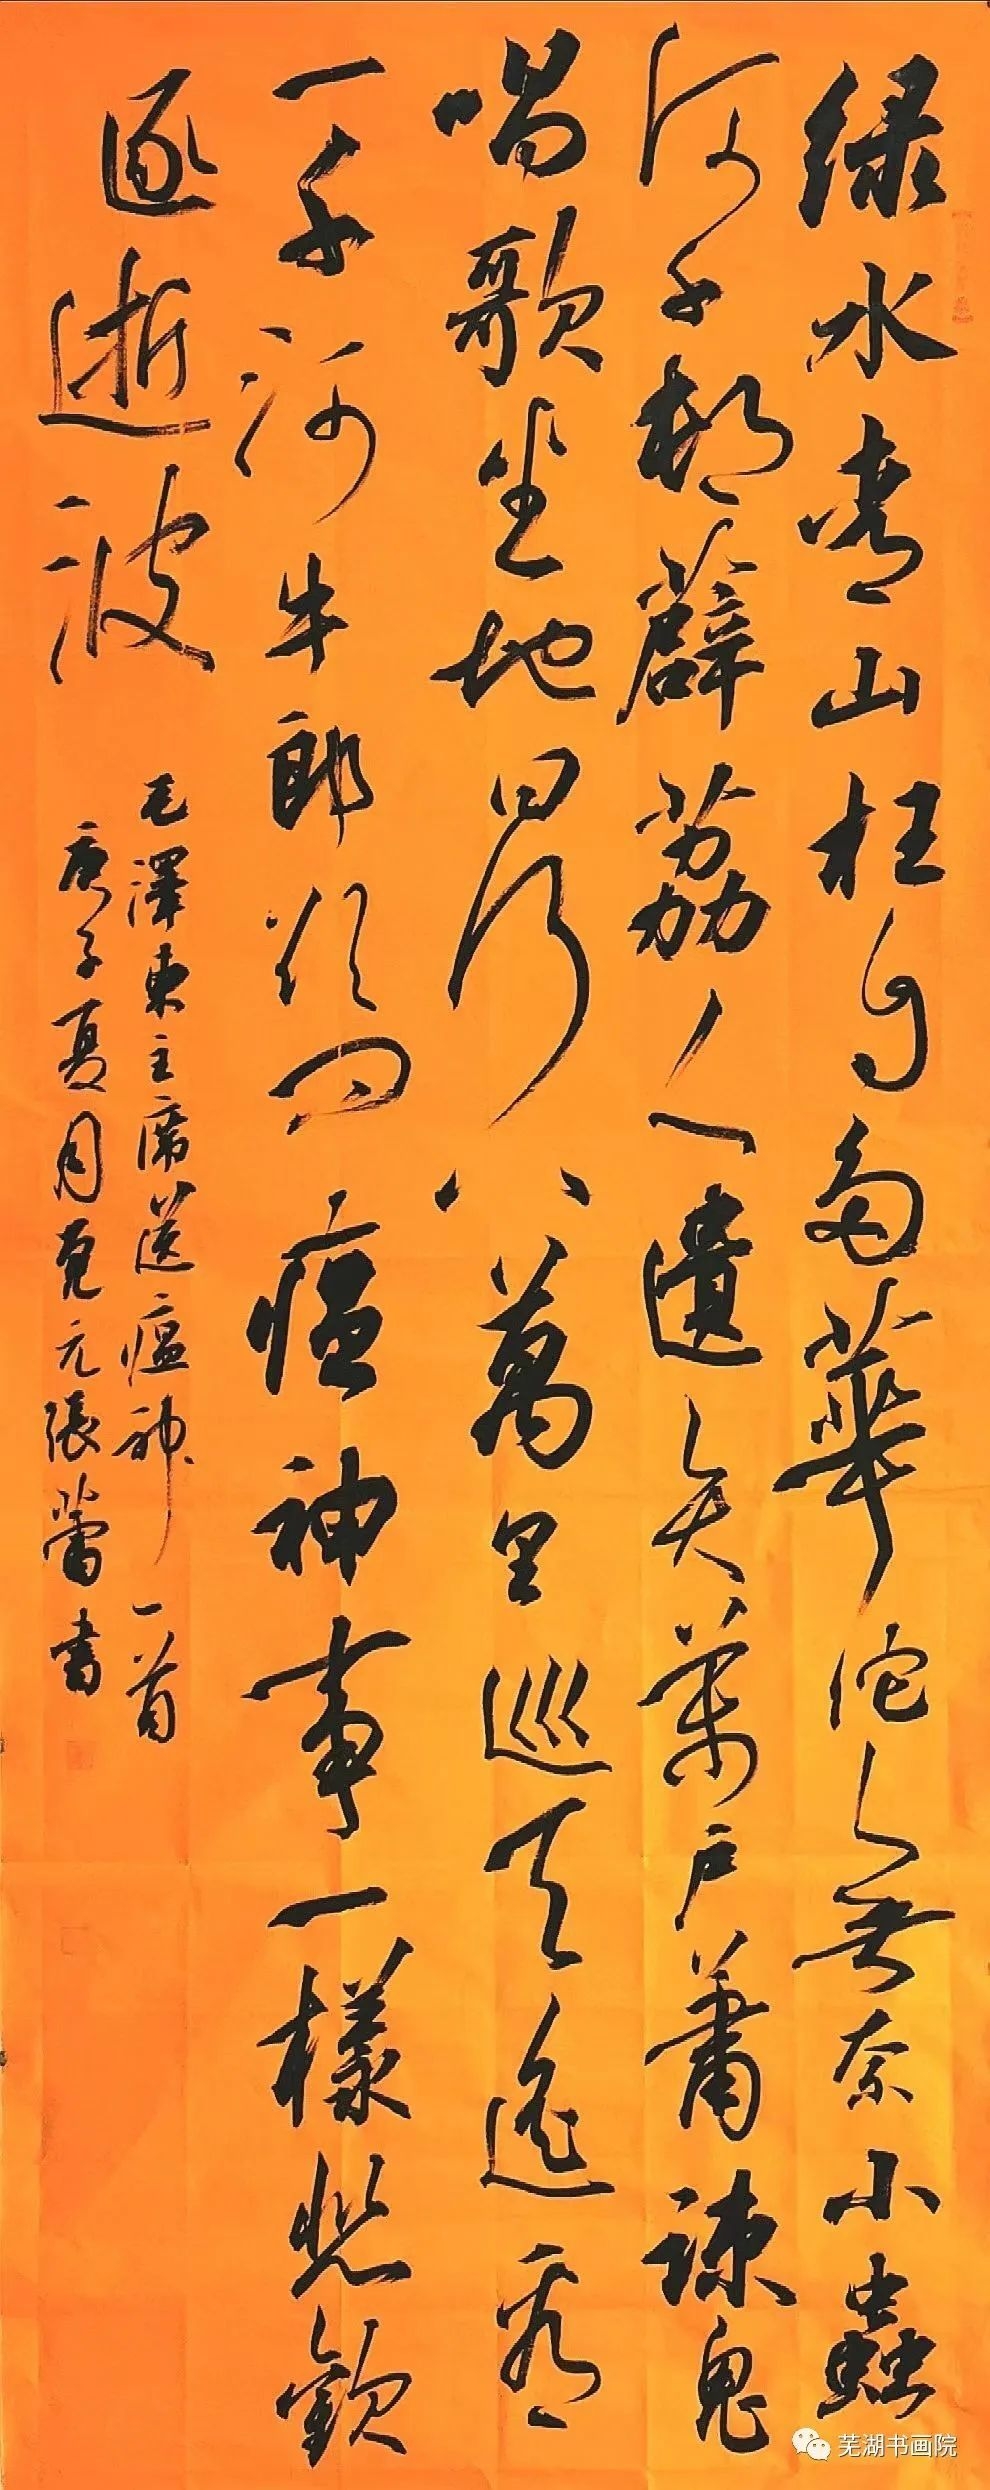 绿水青山枉自多華佗無奈小蟲
何千村薜荔人遺矢萬戶蕭疎鬼
唱歌坐地日行八萬里巡天遙看
一千河牛郎欲問瘟神事一樣悲歡
逐逝波
毛澤東主席送瘟神一首
庚子夏月元張蕾書
芜湖书画院